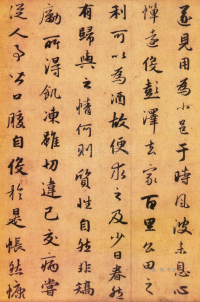 遂見用為小邑于時風波未息心
憚遠役彭澤去家百里公田之
利可以為酒故便求之及少日眷然
有歸與之情何則質性自然非矯
勵所得飢凍雖切違己交病嘗
從人事口腹自役於是悵然慷